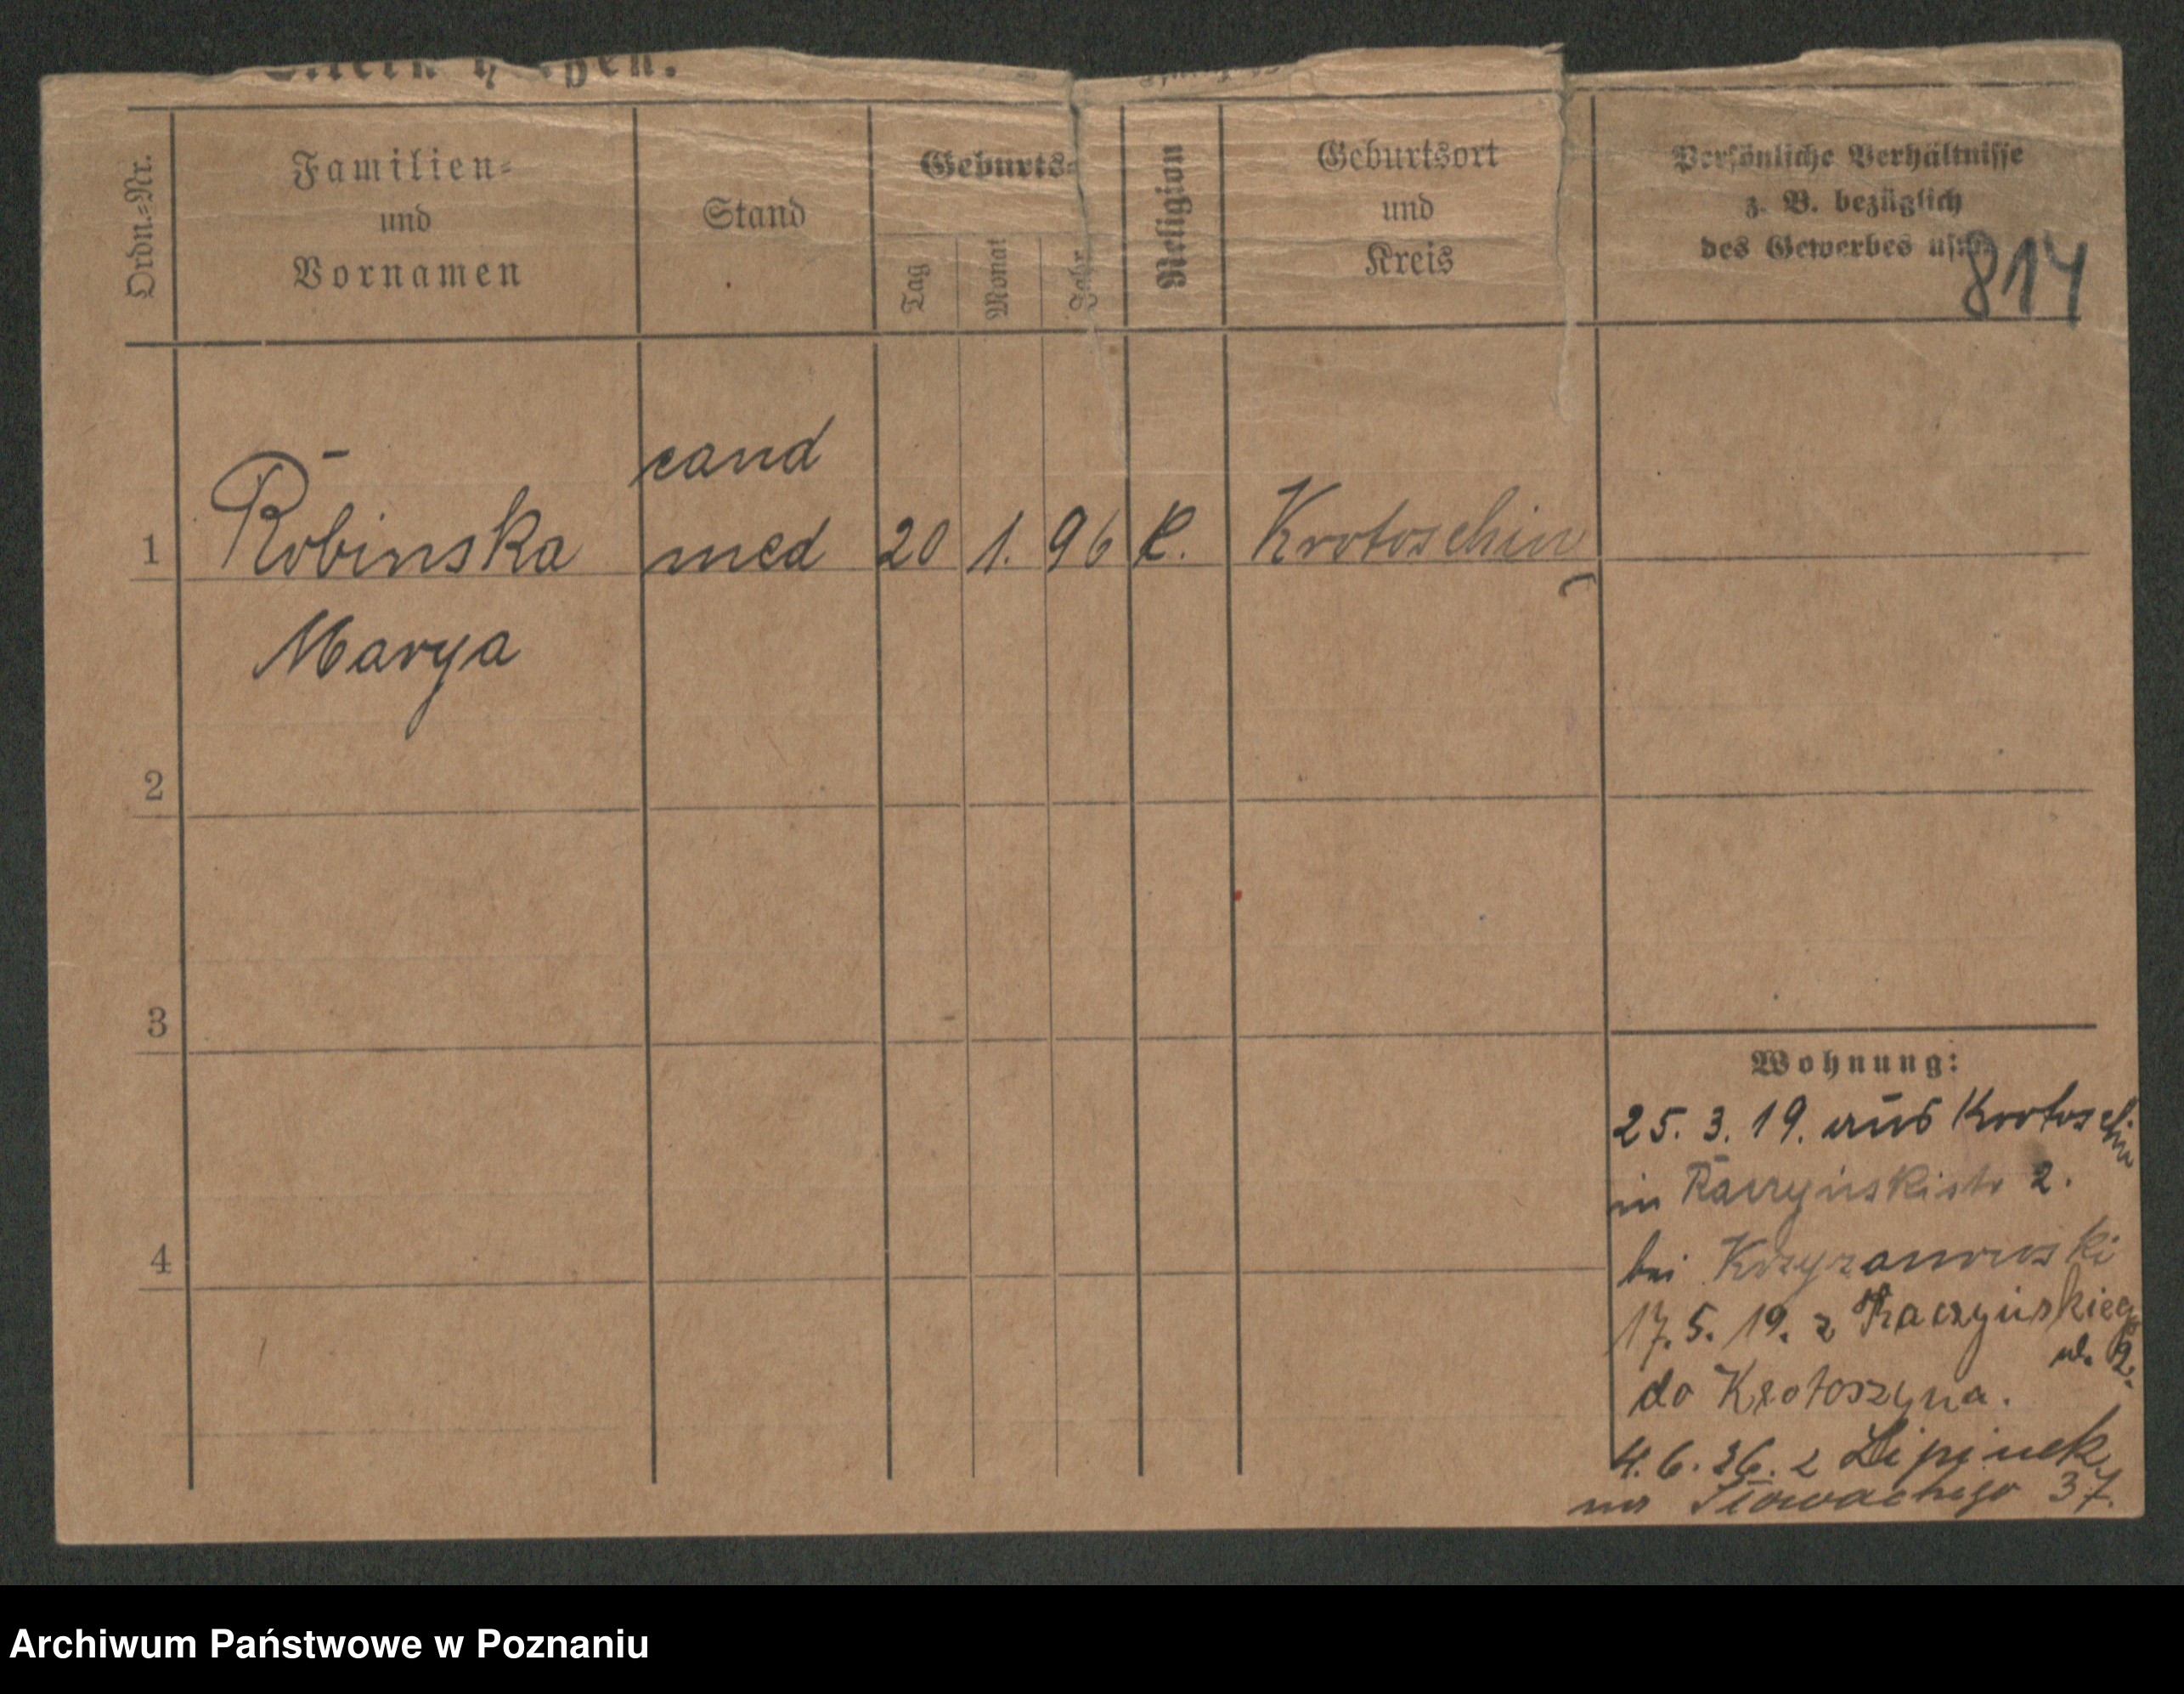 Ordn.=Nr.
Familien=
und
Vornamen
Stand
Geburts=
Tag
Monat
Jahr
Religion
Geburtsort
und
Kreis
Persönliche Verhältnisse
z. B. bezüglich
des Gewerbes usw.
814
cand
1 Robinska med 20 1. 96 K. Krotoschin
Marya
2
3
4
Wohnung:
25. 3. 19. aus Krotoschin
in Raczynskistr 2.
bei Krzyzanowski
17. 5. 19. z Raczyńskiego
ul. 2.
do Krotoszyna.
4. 6. 26. z Lipinek
na Słowackiego 37.
Archiwum Państwowe w Poznaniu